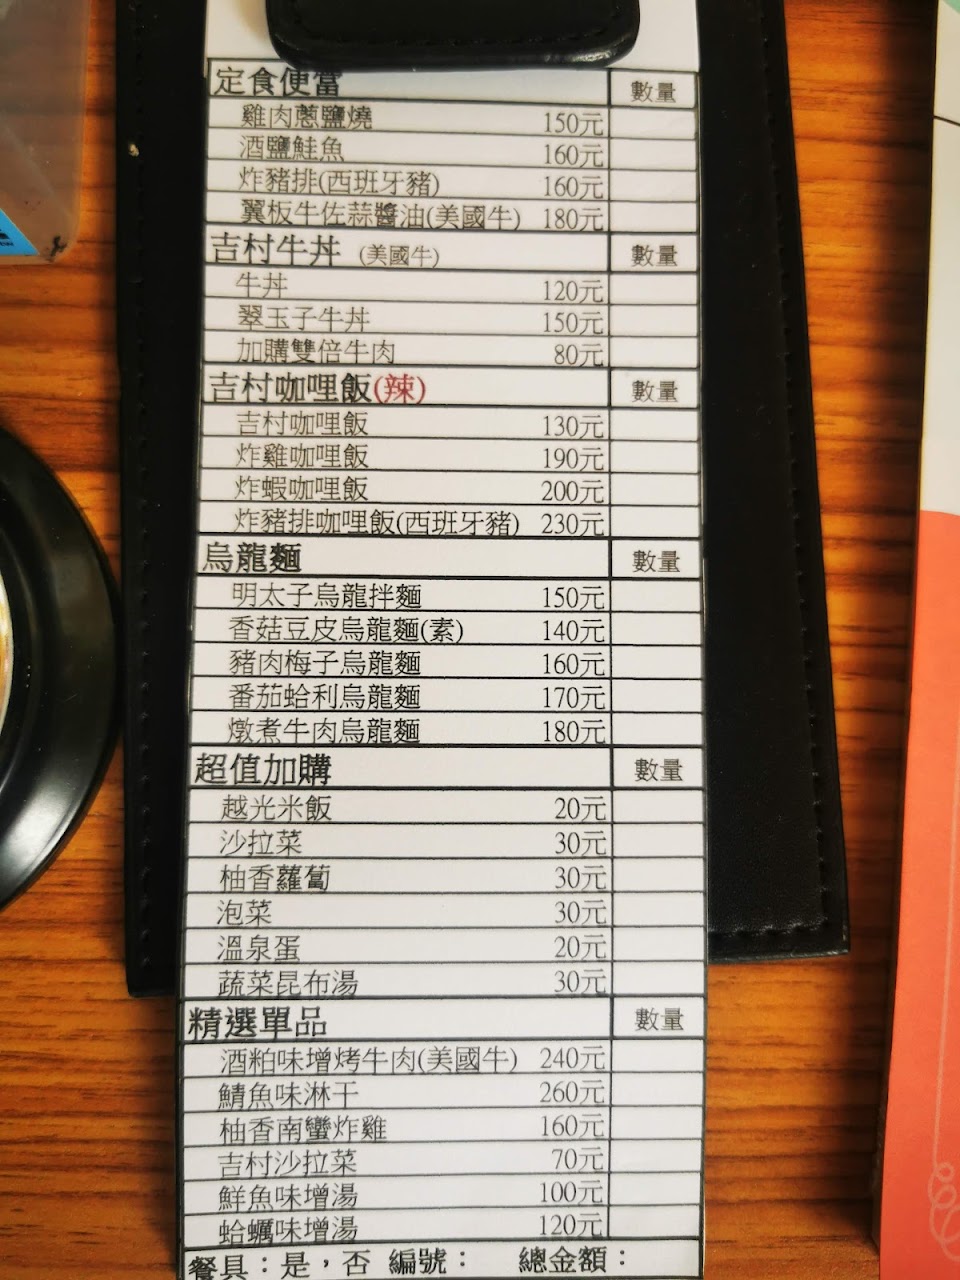 定食便當 數量
雞肉蔥鹽燒 150元
酒鹽鮭魚 160元
炸豬排(西班牙豬) 160元
翼板牛佐蒜醬油(美國牛) 180元
吉村牛丼 (美國牛) 數量
牛丼 120元
翠玉子牛丼 150元
加購雙倍牛肉 80元
吉村咖哩飯(辣) 數量
吉村咖哩飯 130元
炸雞咖哩飯 190元
炸蝦咖哩飯 200元
炸豬排咖哩飯(西班牙豬) 230元
烏龍麵 數量
明太子烏龍拌麵 150元
香菇豆皮烏龍麵(素) 140元
豬肉梅子烏龍麵 160元
番茄蛤利烏龍麵 170元
燉煮牛肉烏龍麵 180元
超值加購 數量
越光米飯 20元
沙拉菜 30元
柚香蘿蔔 30元
泡菜 30元
溫泉蛋 20元
蔬菜昆布湯 30元
精選單品 數量
酒粕味增烤牛肉(美國牛) 240元
鯖魚味淋干 260元
柚香南蠻炸雞 160元
吉村沙拉菜 70元
鮮魚味增湯 100元
蛤蠣味增湯 120元
餐具：是，否 編號： 總金額：